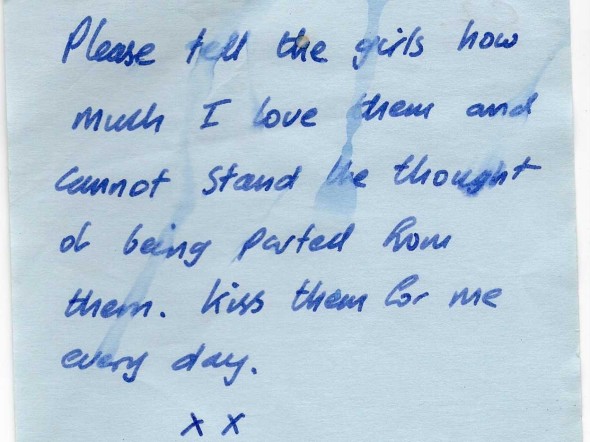 Please tell the girls how
much I love them and
cannot stand the thought
of being parted from
them. Kiss them for me
every day.
x x